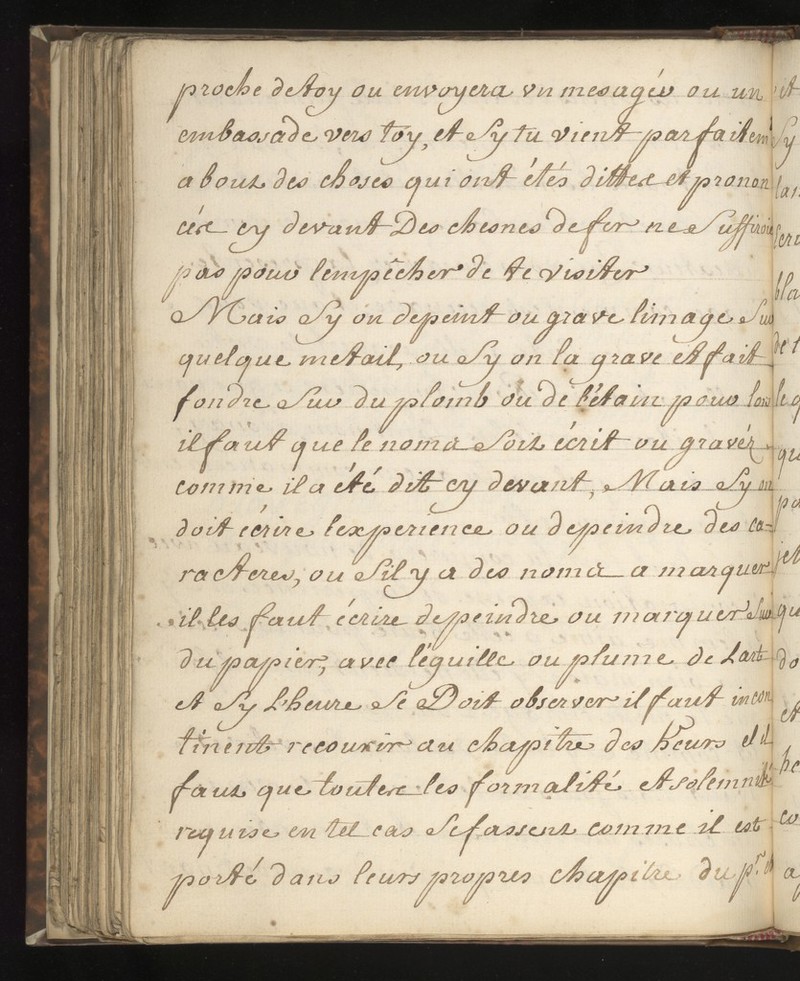 proche de toy ou envoyera vn mesagér ou un
embassade vers toy, et Sy tu vient parfaitem
a bout des choses qui ont étés dittes et pronon
cése cy devant Des chesnes de fer ne Suffiroie
pas pour lempêcher de te visiter
Mais Sy on depeint ou grave limage Sur
quelque metail, ou Sy on la grave et fait
fondre Sur du plomb ou de l'étain pour lors
il faut que le noms Soit écrit ou gravéz
comme il a été dit cy devant, Mais Sy on
doit écrire lexperience ou depeindre des ca=
racteres, ou Sil y a des noms a marquer
il les faut écrire depeindre ou marquer Sur
du papier, avec léguille ou plume de Lart
et Sy L'heure Se Doit observer il faut incon
tinent recourir au chapitre des heurs et il
faut que toutes les formalité et solemnité
requise en tel cas Se fassent comme il est
porté dans leurs propres chapitre du pr.